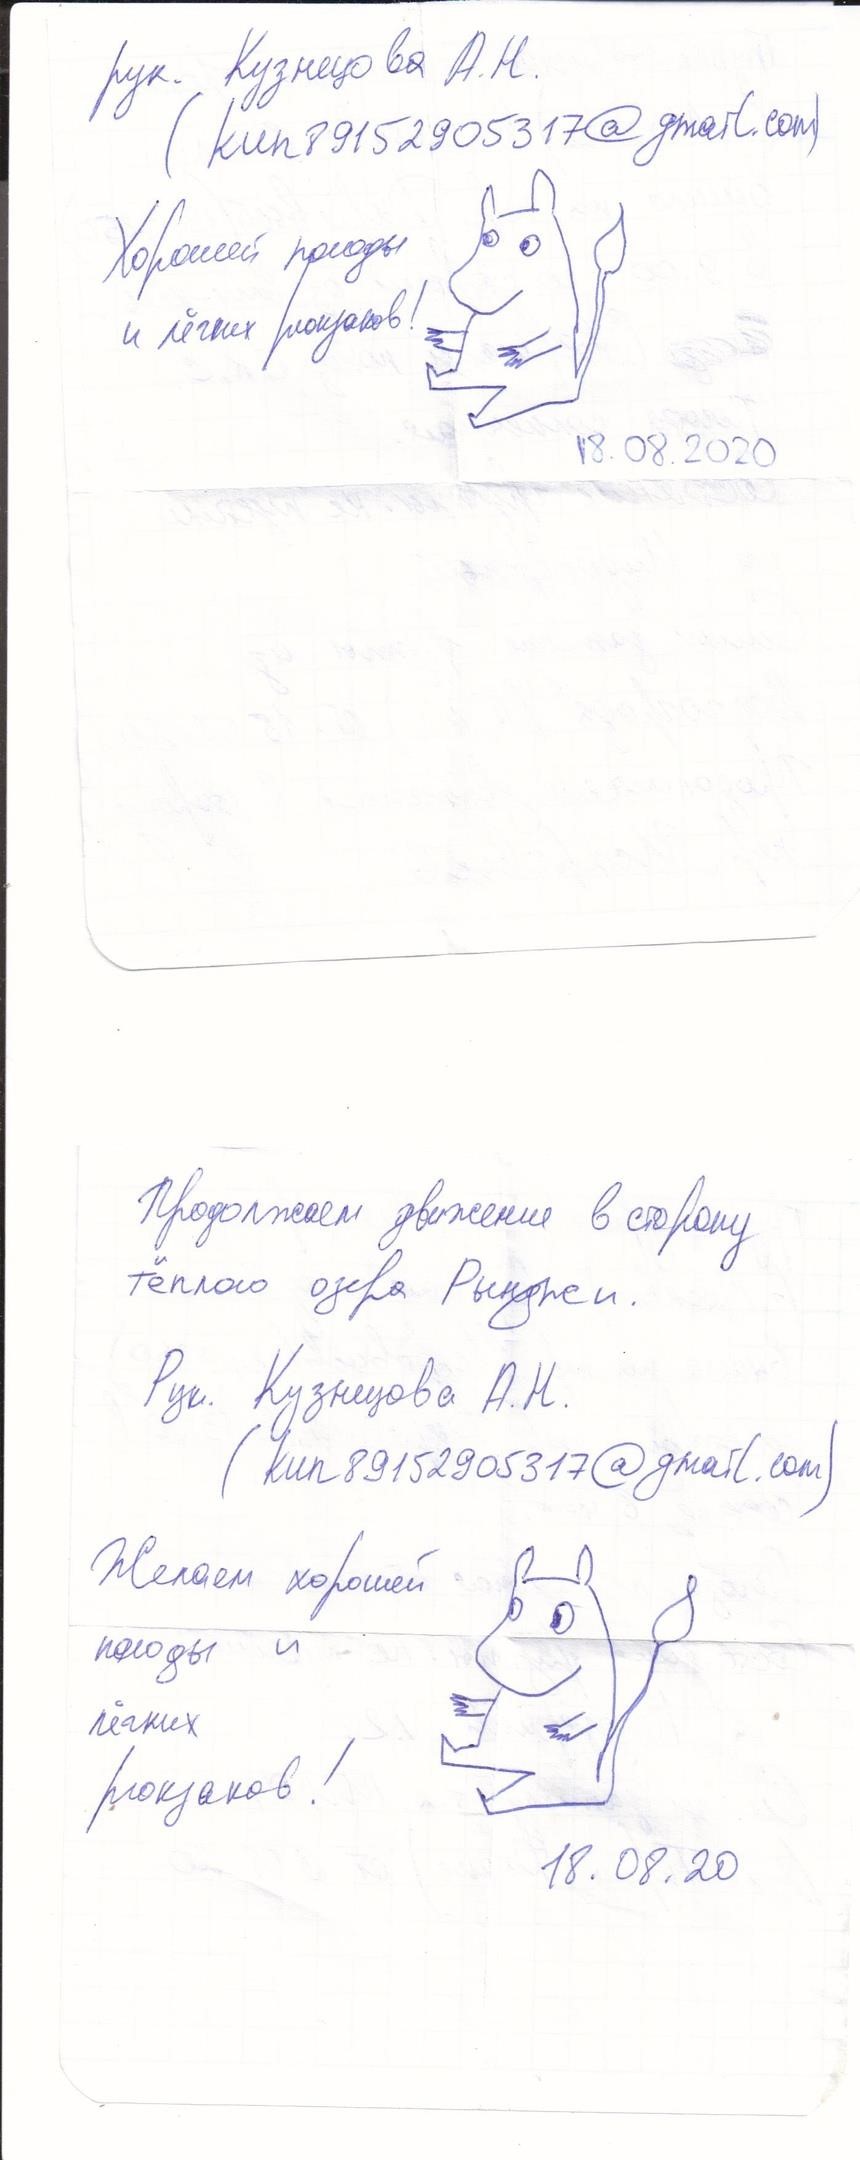 рук. Кузнецова А.Н.
(кип89152905317@gmail.com)
Хорошей погоды
и лёгких рюкзаков!
18.08.2020
Продолжаем движение в сторону
тёплого озера Рынджи.
Рук. Кузнецова А.Н.
(кип89152905317@gmail.com)
Желаем хорошей
погоды и
лёгких
рюкзаков!
18.08.20